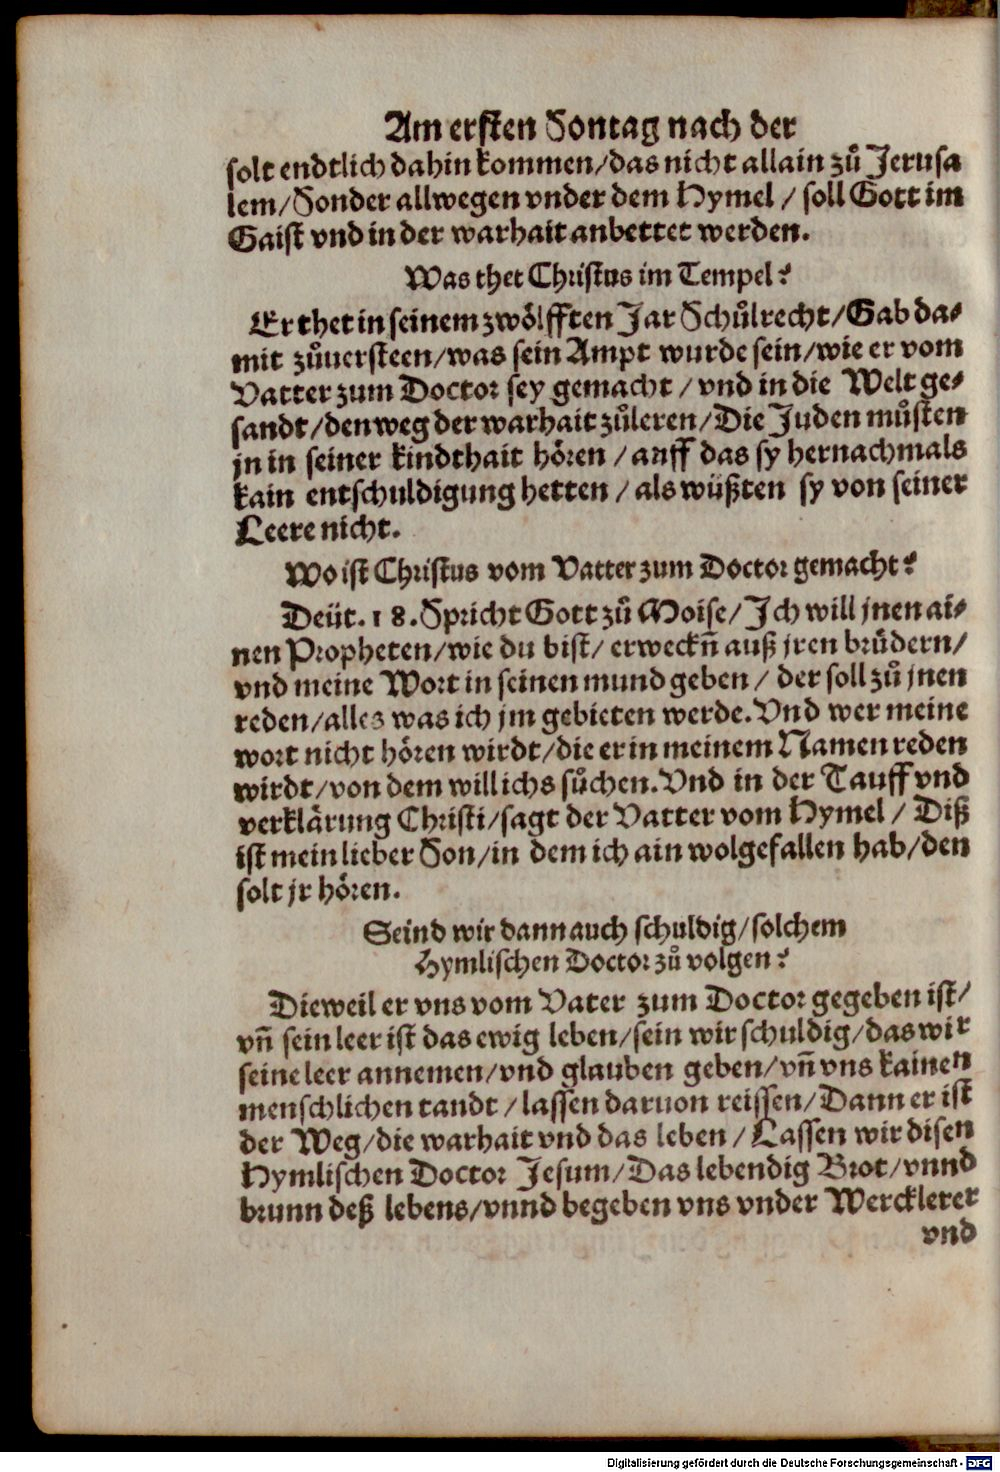 Am ersten Sontag nach der
solt endtlich dahin kommen/das nicht allain zů Jerusa
lem/Sonder allwegen vnder dem Hymel / soll Gott im
Gaist vnd in der warhait anbettet werden.
Was thet Christus im Tempel?
Er thet in seinem zwölfften Jar Schůlrecht/Gab da-
mit zůuersteen/was sein Ampt wurde sein/wie er vom
Vatter zum Doctor sey gemacht / vnd in die Welt ge-
sandt/den weg der warhait zůleren/Die Juden můsten
jn in seiner kindthait hören / auff das sy hernachmals
kain entschuldigung hetten / als wüßten sy von seiner
Leere nicht.
Wo ist Christus vom Vatter zum Doctor gemacht?
Deüt. 18. Spricht Gott zů Moise/Ich will jnen ai-
nen Propheten/wie du bist/ erweckn̄ auß jren brůdern/
vnd meine Wort in seinen mund geben / der soll zů jnen
reden/alles was ich jm gebieten werde. Vnd wer meine
wort nicht hören wirdt/die er in meinem Namen reden
wirdt/von dem will ichs sůchen. Vnd in der Tauff vnd
verklärung Christi/sagt der Vatter vom Hymel / Diß
ist mein lieber Son/in dem ich ain wolgefallen hab/den
solt jr hören.
Seind wir dann auch schuldig/solchem
Hymlischen Doctor zů volgen?
Dieweil er vns vom Vater zum Doctor gegeben ist/
vn̄ sein leer ist das ewig leben/sein wir schuldig/das wir
seine leer annemen/vnd glauben geben/vn̄ vns kainen
menschlichen tandt / lassen daruon reissen/Dann er ist
der Weg/die warhait vnd das leben / Lassen wir disen
Hymlischen Doctor Jesum/Das lebendig Brot/vnnd
brunn deß lebens/vnnd begeben vns vnder Wercklerer
vnd
Digitalisierung gefördert durch die Deutsche Forschungsgemeinschaft - DFG